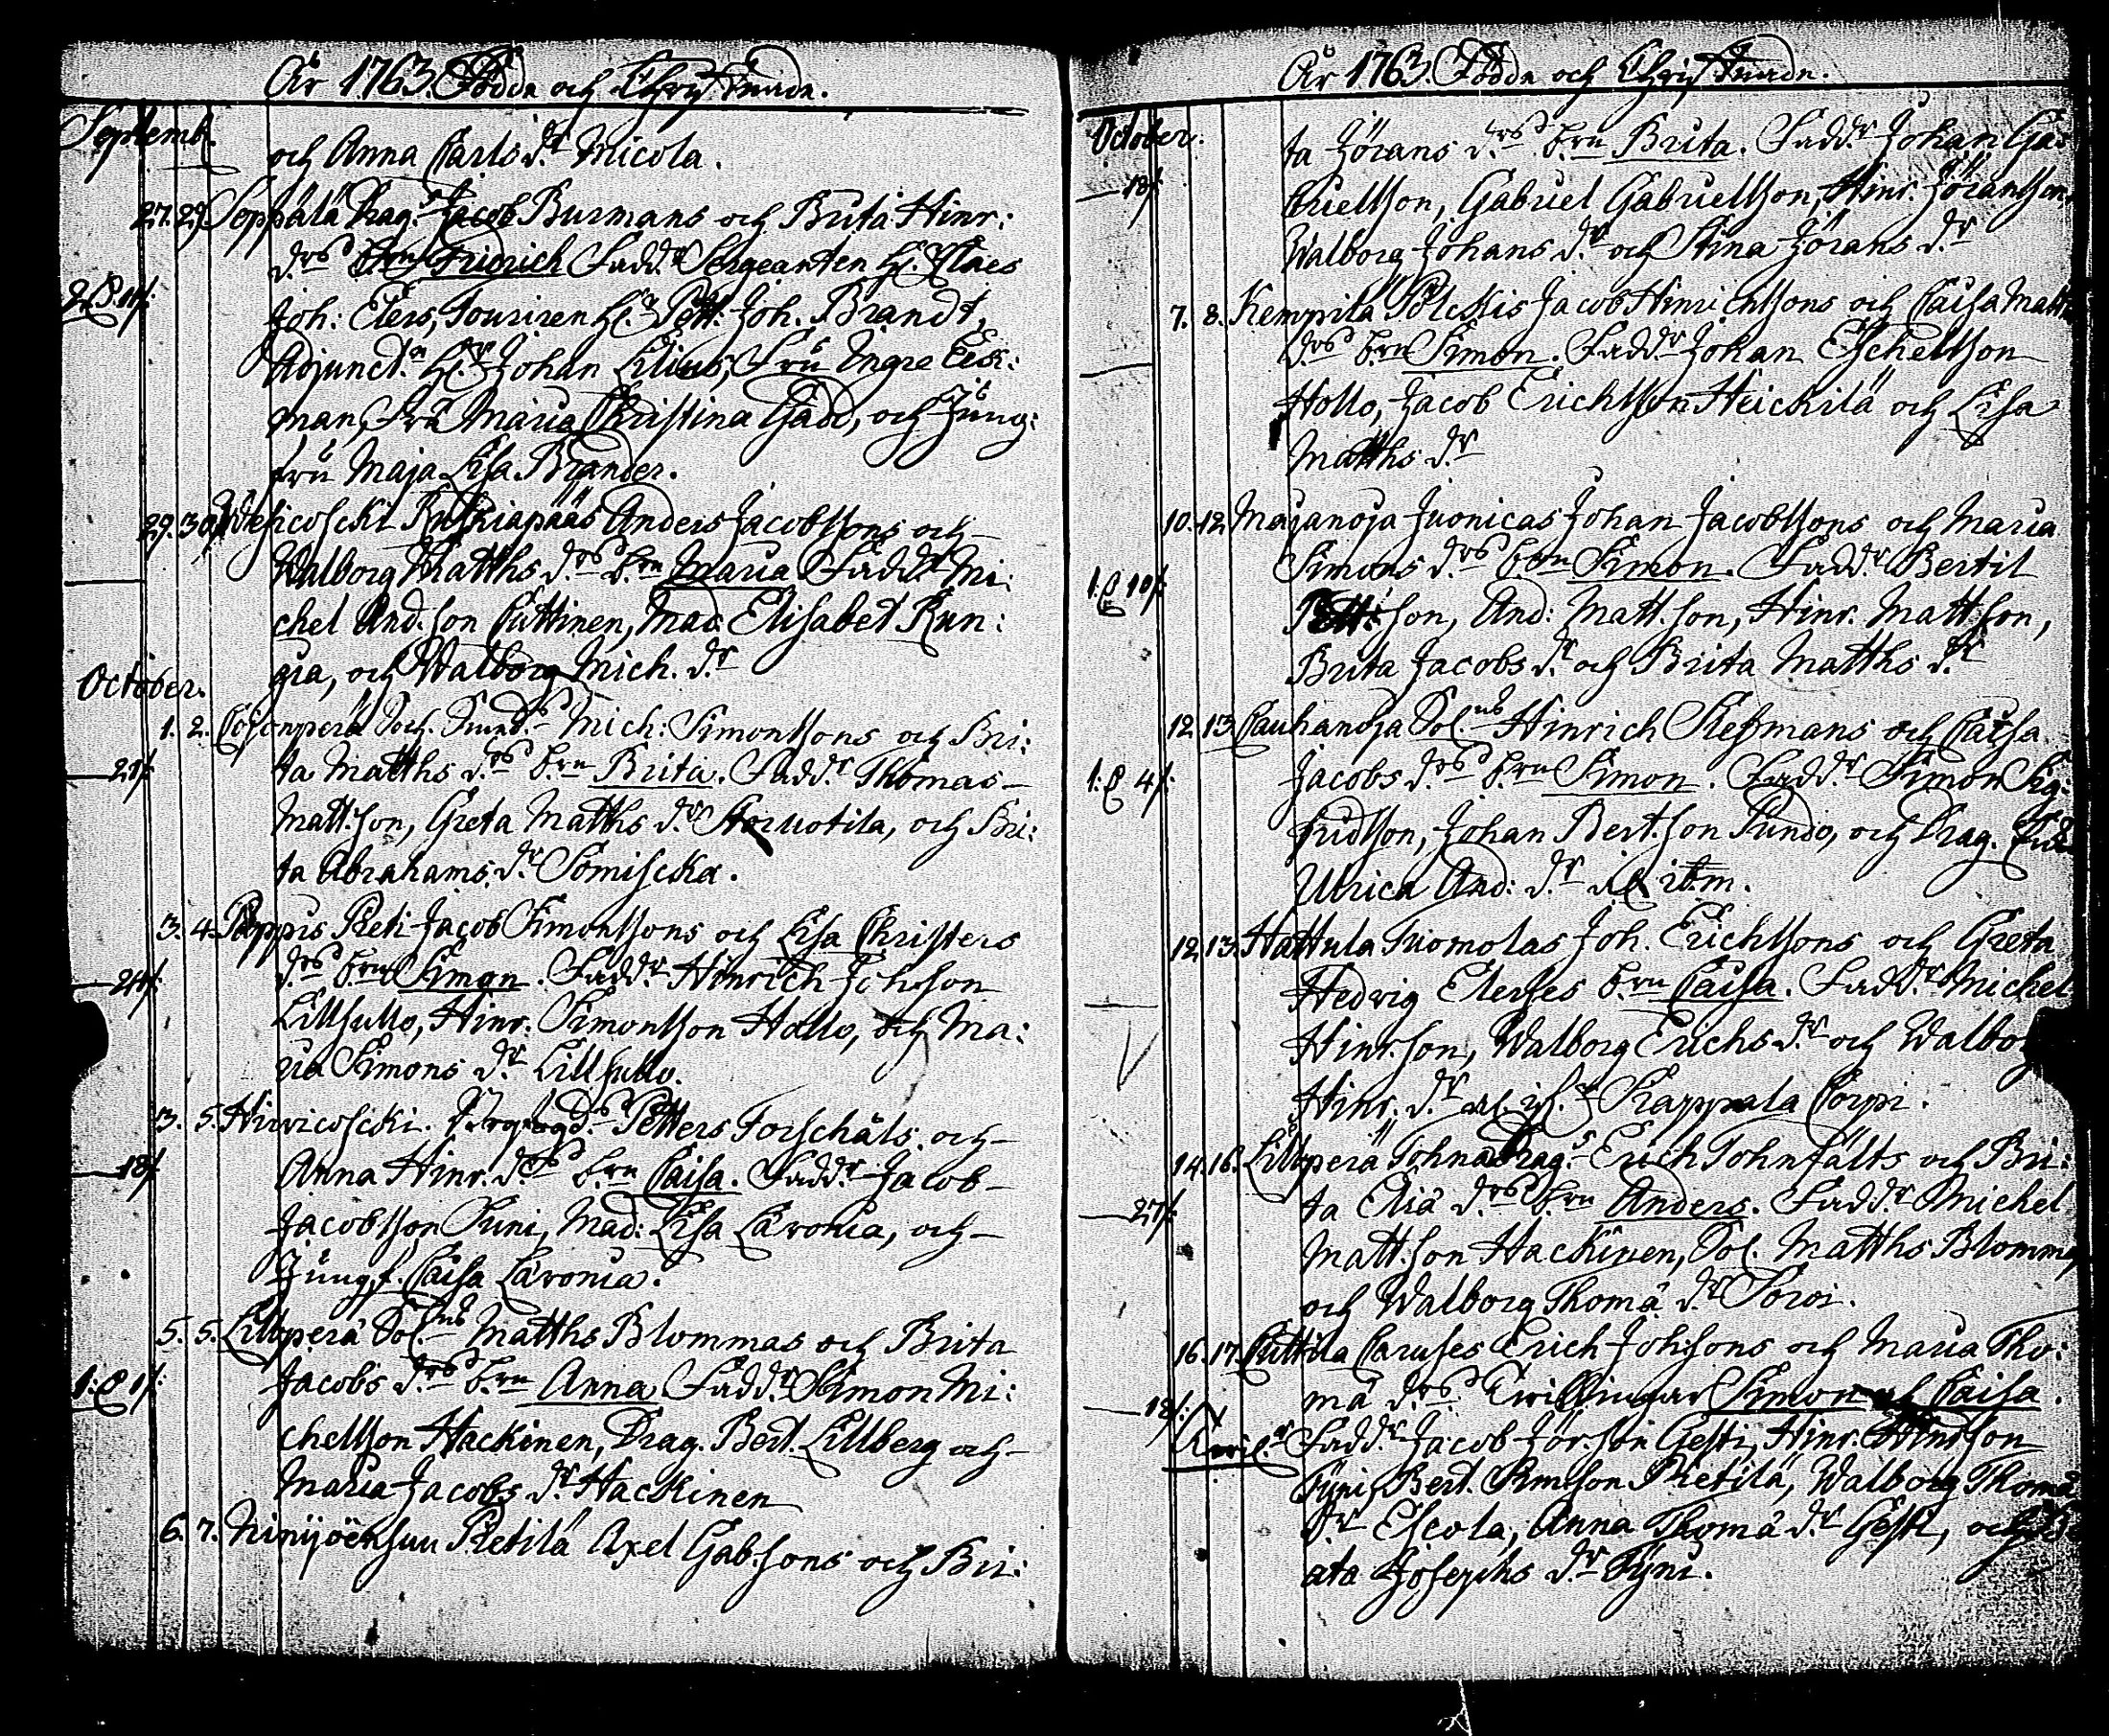 År 1763. Födde och Christnade.
Septemb.
och Anna Carls d.r Nicola.
27. 29. Seppälä Drag.s Jacob Burmans och Brita Hinr:
d.rs b.rn Fridrich Fadd.r Sergeanten H. Claes
2 P. 11/:
Joh: Elers, Petr. Joh. Brandt,
Adjunct.n H.r Johan Lilius, Fru Ingre Eek:
man, Fru Maria Christina Gadd, och Jung:
fru Maja Lisa Brander.
29. 30. Anders Jacobssons och
Walborg Matths d.rs b.rn Maria Fadd.r Mi:
chel And.son Cuttinen, Mad. Elisabet Run:
gia, och Walborg Mich. d.r
October.
1. 2. Mich: Simonssons och Bri:
ta Matths d.rs b.rn Brita. Fadd.r Thomas
21/:
Matt.son, Greta Matths d.r och Bri:
ta Abrahams d.r Tomiscka.
3. 4. Pappis Reti Jacob Simonssons och Lisa Christers
d.rs b.rn Simon. Fadd.r Hinrich Joh.son
24/:
Lillhullo, Hinr. Simonsson Hollo, och Ma:
ria Simons d.r Lillhullo.
3. 5. Hirvicoscki. Petters Forschäls och
Anna Hinr. d.rs b.rn Caisa. Fadd.r Jacob
18/:
Jacobsson Juni, Mad: Lisa Lavonia, och
Jungf. Caisa Lavonia.
5. 5. Lillperä Sol. Matths Blommas och Brita
Jacobs d.rs b.rn Anna Fadd.r Simon Mi:
1: P 1/:
chelsson Hackinen, Drag. Bert. Lillberg och
Maria Jacobs d.r Hackinen
6. 7. Niinijöensuu Pietilä Axel Gab.sons och Bri:
År 1763 Födde och Christnade.
October.
ta Jörans d.rs b.rn Brita. Fadd.r Johan Ga:
18/:
bruelsson, Gabriel Gabrielsson, Hinr. Jöransson,
Walborg Johans d.r och Stina Jörans d.r
7. 8. Kempila Pölckis Jacob Hinrichssons och Caisa Matt
d.rs b.rn Simon. Fadd.r Johan Eschelsson
Hollo, Jacob Erichsson Heickilä och Lisa
Matths d.r
10. 12. Majanoja Juonicas Johan Jacobssons och Maria
Simons d.rs b.rn Simon. Fadd.r Bertil
1: P 10/:
Pett.son, And: Matt.son, Hinr. Matt.son,
Brita Jacobs d.r och Brita Matths d.r
12. 13. Cauhanoja Sol. Hinrich Resmans och Caisa
Jacobs d.rs b.rn Simon. Fadd.r Simon Sig:
1: P 4/:
fridsson, Johan Bert.son Pundo, och Drag.
Ulrica And: d.r
12. 13. Hattula Tuomolas Joh. Erichssons och Greta
Hedvig Elerses b.rn Caisa. Fadd.r Michel
Hinr.son, Walborg Erichs d.r och Walborg
Hinr. d.r Kappala Corpi.
14. 16. Lillperä Tohna Drag.s Erich Tohnfälts och Bri:
ta Eliæ d.rs b.rn Anders. Fadd.r Michel
27/:
Matt.son Hackinen, Sol. Matths Blomma,
och Walborg Thomæ d.r Soroi.
16. 17. Cuttila Caruses Erich Joh.sons och Maria Tho:
mæ d.rs Twillingar Simon och Caisa.
18/:
Fadd.r Jacob Jör.son Gesti, Hinr. Hindrson
Tyni, Bert. Sim.son Pietilä, Walborg Thomæ
d.r Escola, Anna Thomæ d.r Gesti, och Be
ata Josephs d.r Tyni.